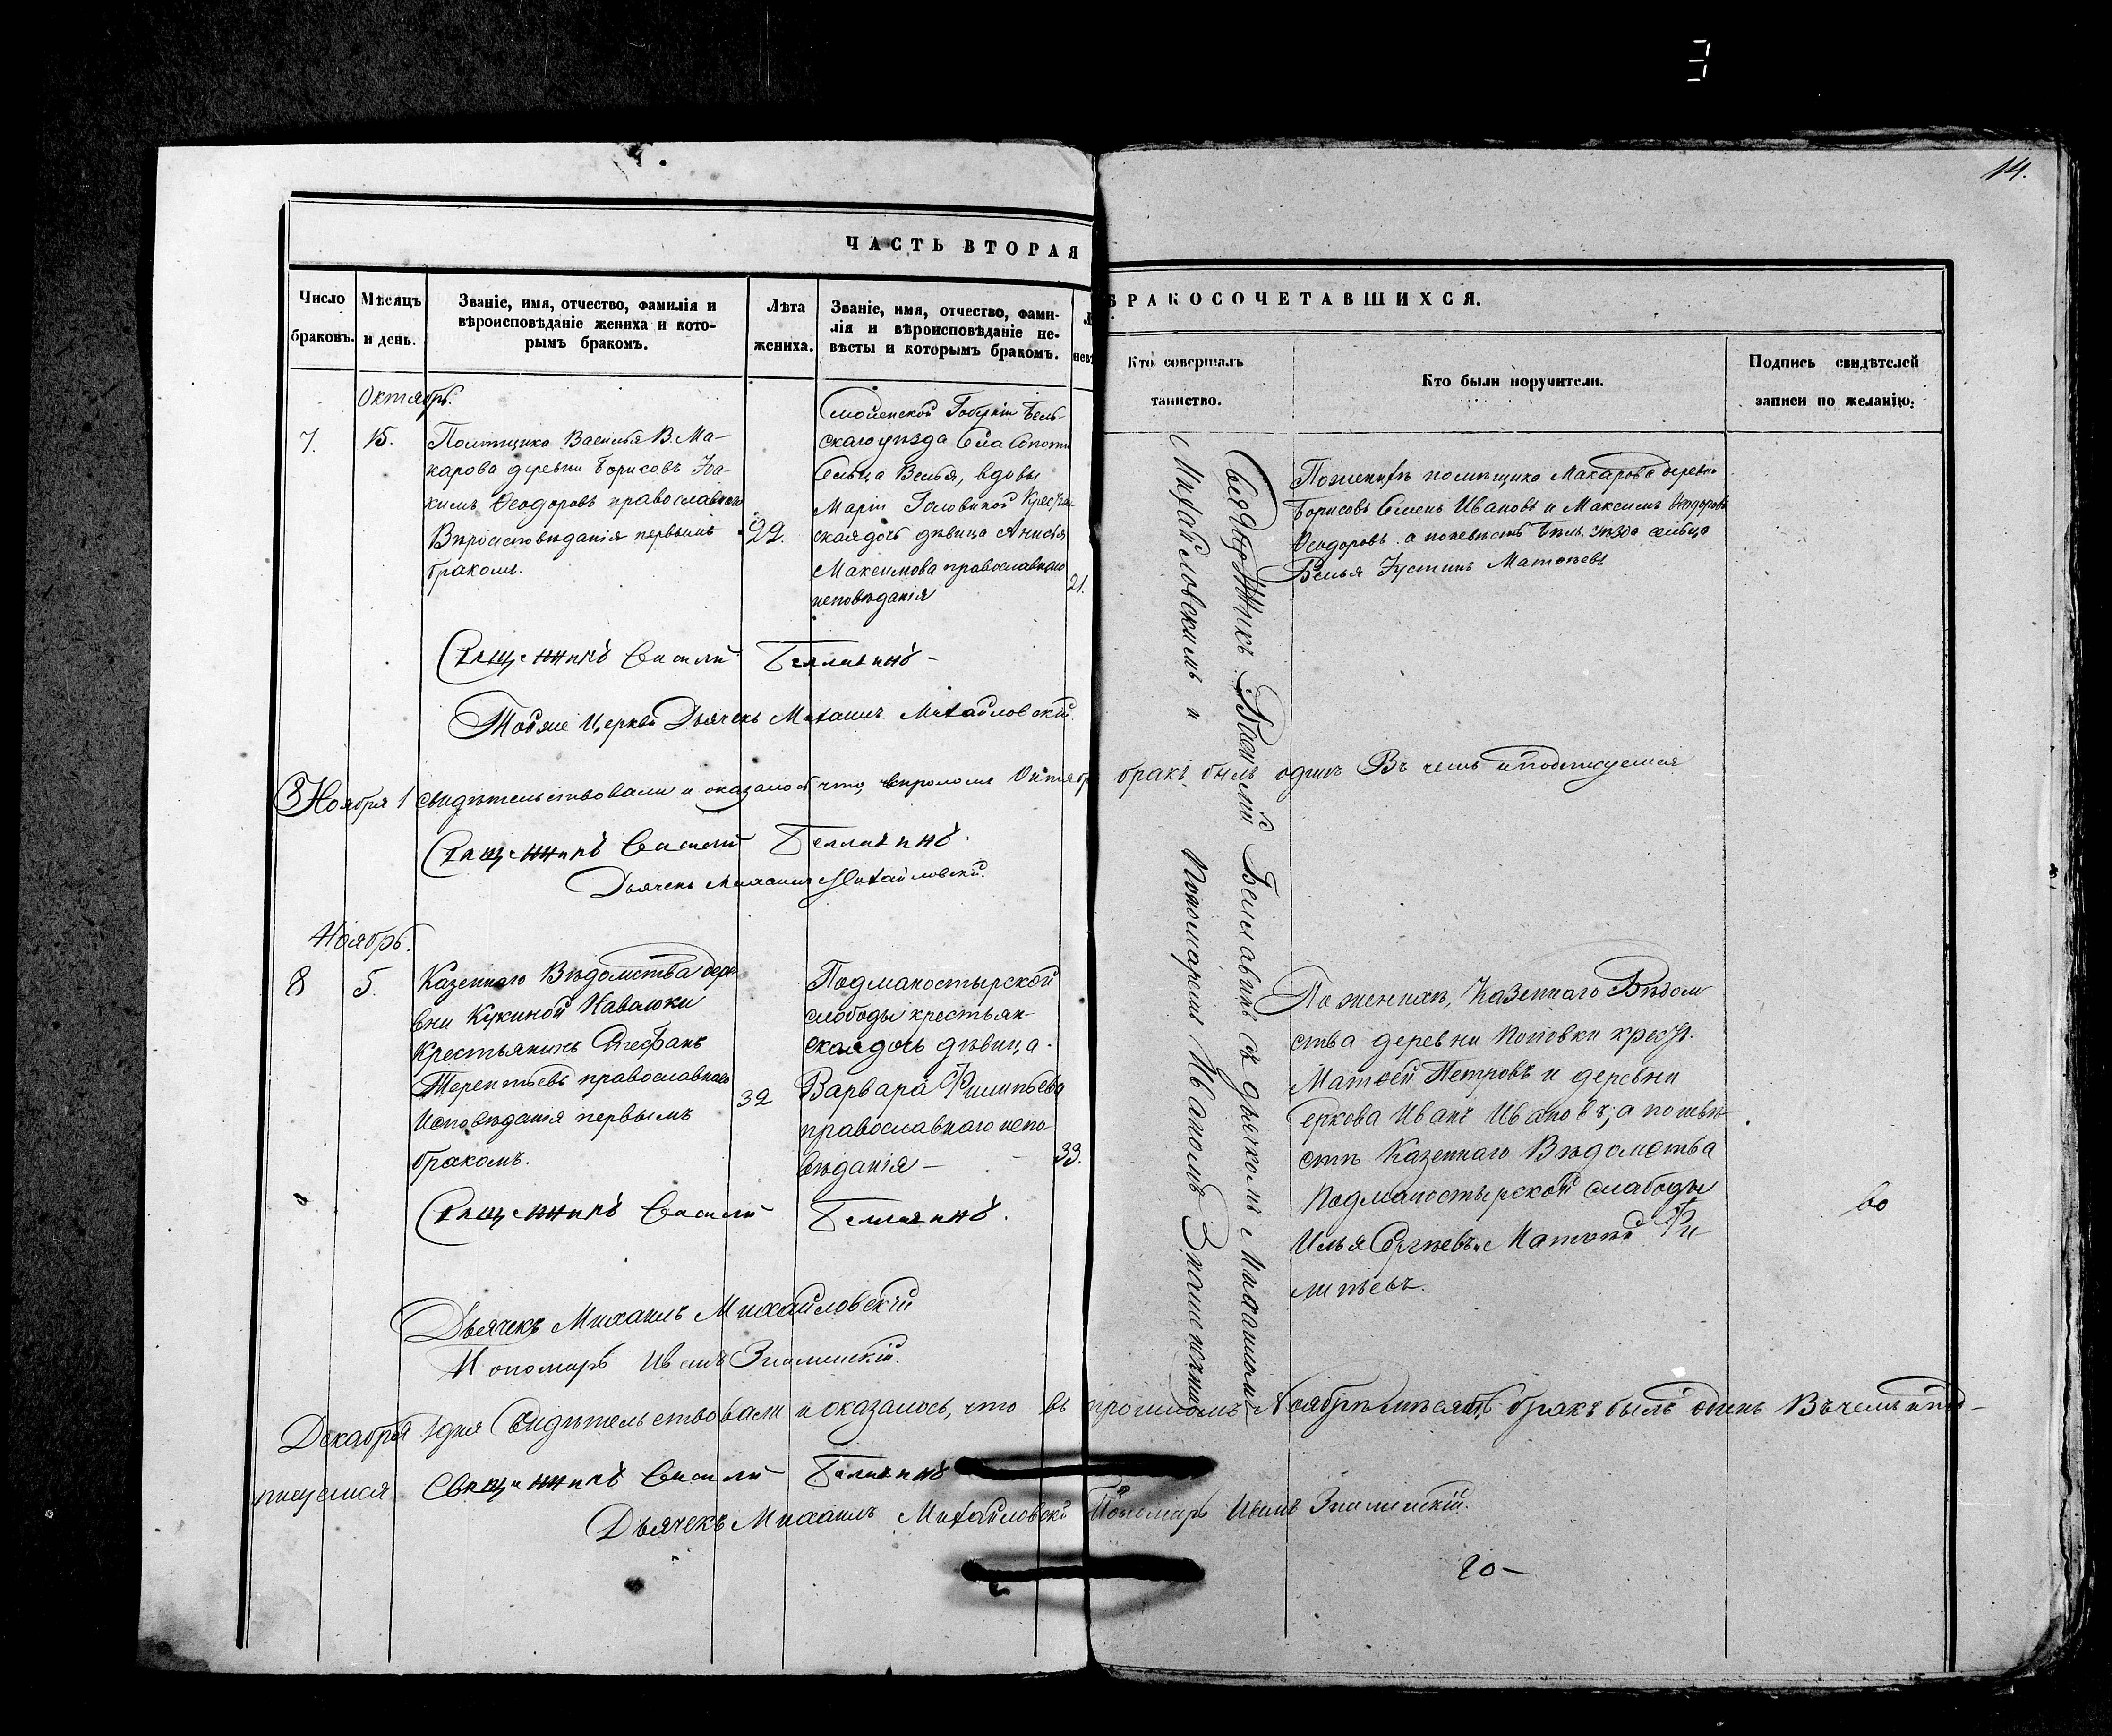 14.
ЧАСТЬ ВТОРАЯ
БРАКОСОЧЕТАВШИХСЯ.
Число браковъ.
Мѣсяцъ и день.
Званіе, имя, отчество, фамилія и
вѣроисповѣданіе жениха и кото-
рымъ бракомъ.
Лѣта
жениха.
Званіе, имя, отчество, фами-
лія и вѣроисповѣданіе не-
вѣсты и которымъ бракомъ.
Кто совершалъ
таинство.
Кто были поручители.
Подпись свидѣтелей
записи по желанію.
Октябрь.
7.
15.
Помѣщика Василья В. Ма-
карова деревни Борисовъ
Ѳеодоровъ православнаго
Вѣроисповѣданія первымъ
бракомъ.
22.
Смоленской Губерніи Бель-
скаго уѣзда
Сельца Велья, вдовы
Маріи Головиной Крестьян-
ская дочь дѣвица Анисья
Максимова православнаго
исповѣданія
21.
Священникъ Василій
Тойже Церкви Дьячекъ Михаилъ Михайловскій.
Ноября 1 свидѣтельствовали и оказалось что, Октябрѣ бракъ былъ одинъ Въ чемъ и подписуемся
Священникъ Василій
Дьячекъ Михаилъ Михайловскій.
Ноябрь.
8
5.
Казеннаго Вѣдомства дере-
вни Кукиной
Крестьянинъ Стефанъ
Терентьевъ православнаго
Исповѣданія первымъ
бракомъ.
32
Подмонастырской
слободы крестьян-
ская дочь дѣвица
Варвара Филипьева
православнаго испо-
вѣданія —
33.
Священникъ Василій
Дьячекъ Михаилъ Михайловскій
Пономарь Иванъ Знаменскій.
Декабря 1 дня Свидѣтельствовали и оказалось, что въ прошломъ Ноябрѣ мѣсяцѣ бракъ былъ одинъ Въ чемъ и под-
писуемся Священникъ Василій
Дьячекъ Михаилъ Михайловскій Пономарь Иванъ Знаменскій.
Священникъ Василій съ дьячкомъ Михаиломъ
Михайловскимъ и Пономаремъ Иваномъ Знаменскимъ
По женихѣ помѣщика Макарова деревни
Борисовъ Семенъ Ивановъ и Максимъ
Ѳеодоровъ а по невѣстѣ Бѣль. уѣзда сельца
Велья Устинъ
По женихѣ, Казеннаго Вѣдом
ства деревни Поповки крест.
Матвей Петровъ и деревни
Иванъ Ивановъ, а по невѣ-
стѣ Казеннаго Вѣдомства
Подмонастырской слабоды
Илья Сергѣевъ и Матвей Фи-
липьевъ.
20 —